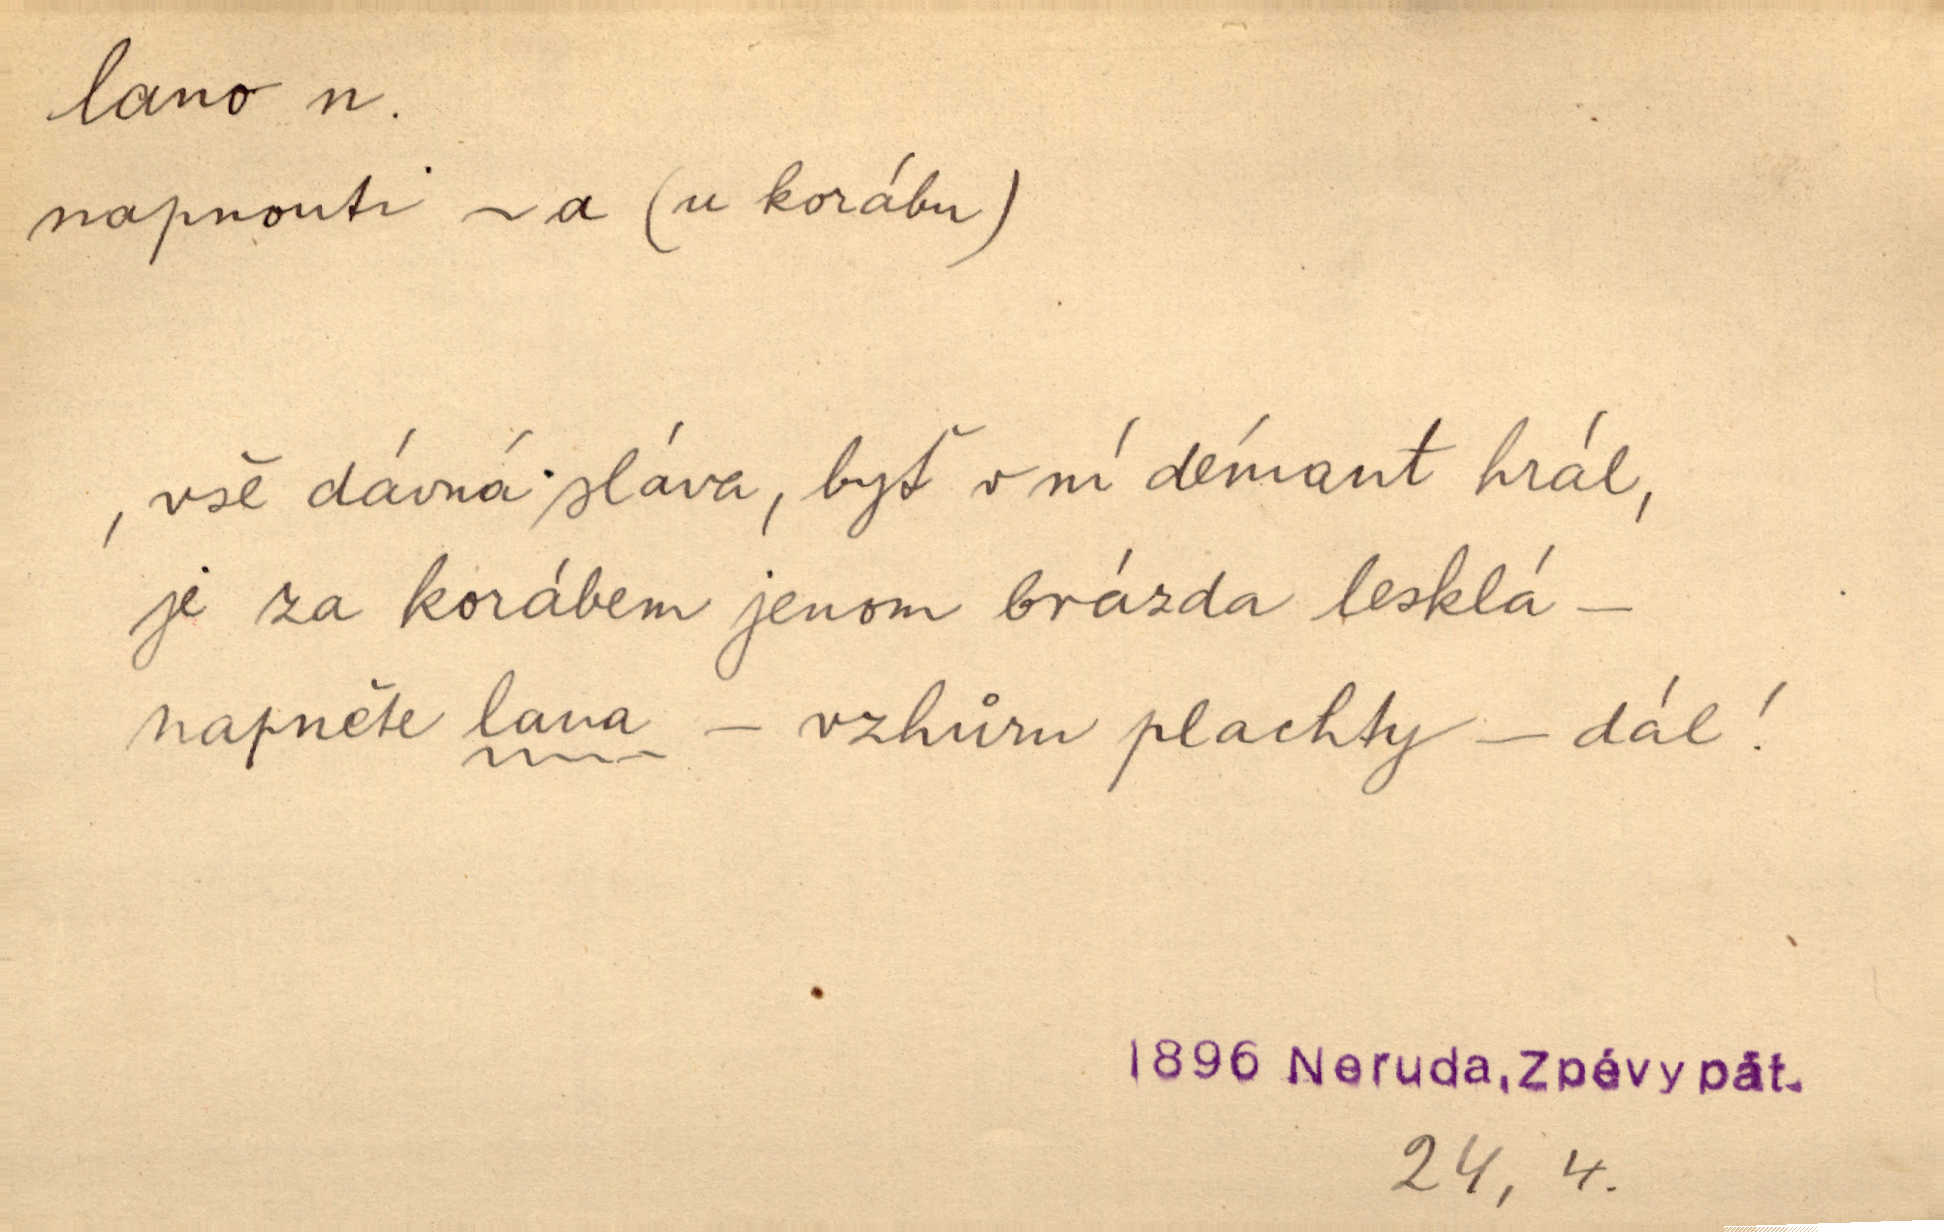 lano n.
napnouti ~a (u korábu)
, vše dávná sláva, byť v ní démant hrál,
je za korábem jenom brázda lesklá –
napněte lana – vzhůru plachty – dál!
1896 Neruda, Zpěvy pát.
24, 4.